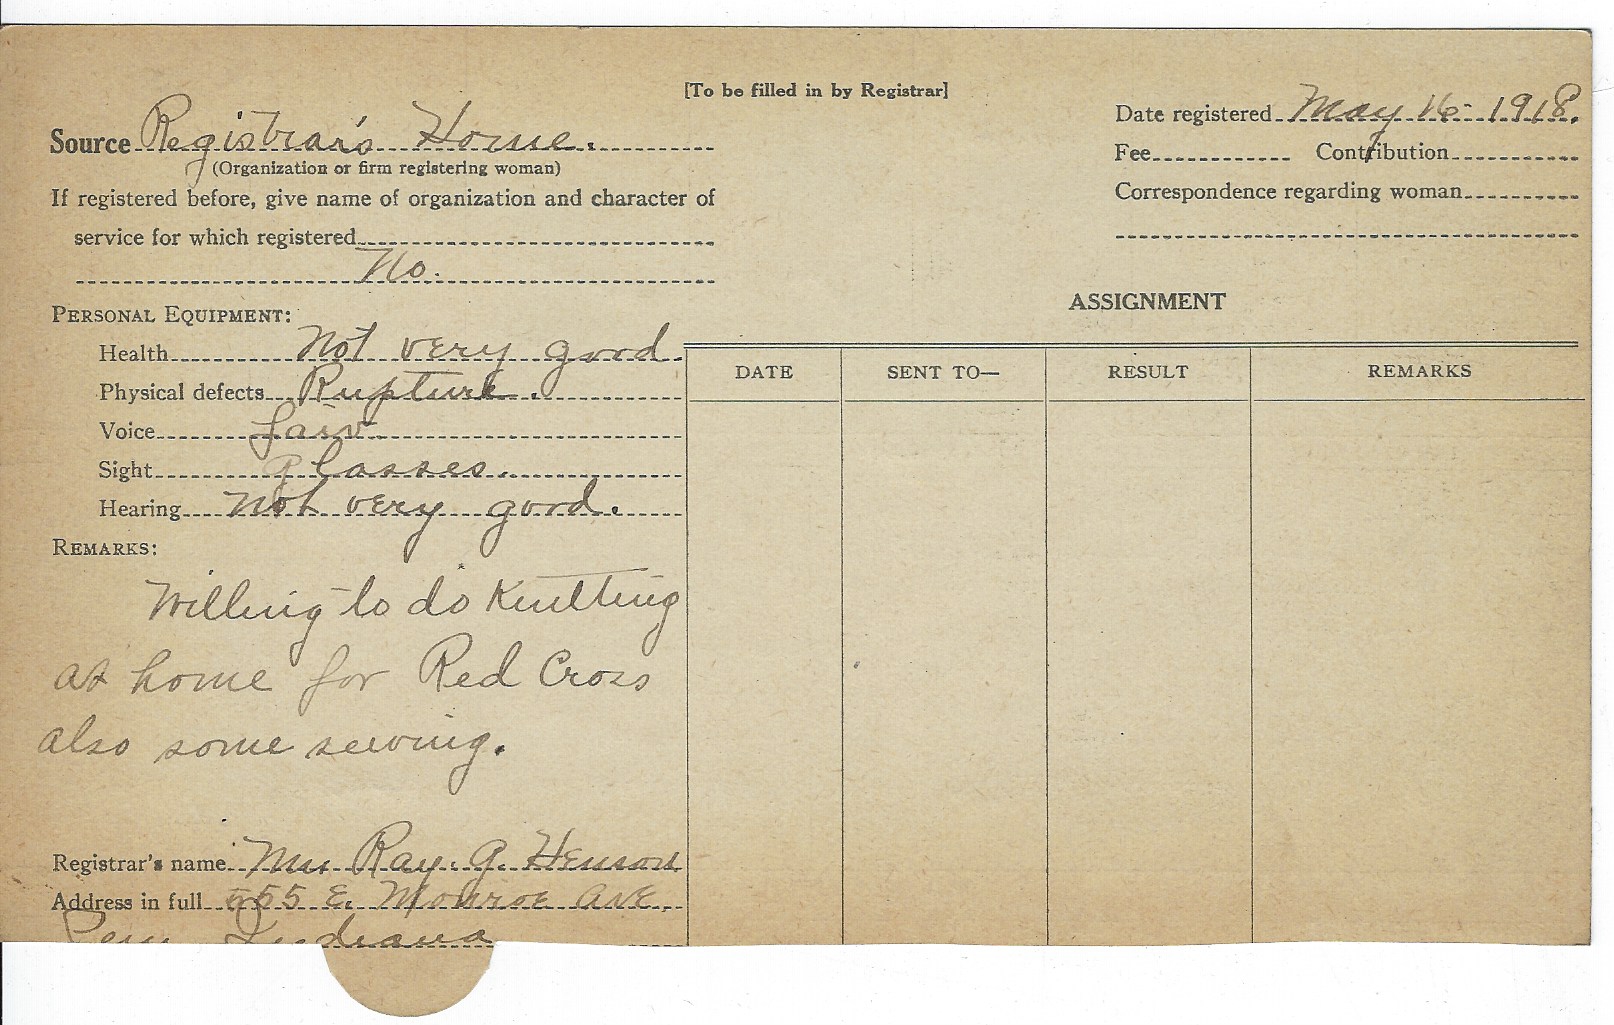 [To be filled in by Registrar]
Source Registrar's Home.
(Organization or firm registering woman)
If registered before, give name of organization and character of
service for which registered
No.
Date registered May 16 - 1918.
Fee Contribution
Correspondence regarding woman
PERSONAL EQUIPMENT:
Health Not very good.
Physical defects Rupture.
Voice fair
Sight Glasses.
Hearing not very good.
REMARKS:
Willing to do Knitting
at home for Red Cross
also some sewing.
Registrar's name Mrs Ray. G. Henson
Address in full 555 E. Monroe Ave.
Peru Indiana
ASSIGNMENT
DATE SENT TO— RESULT REMARKS